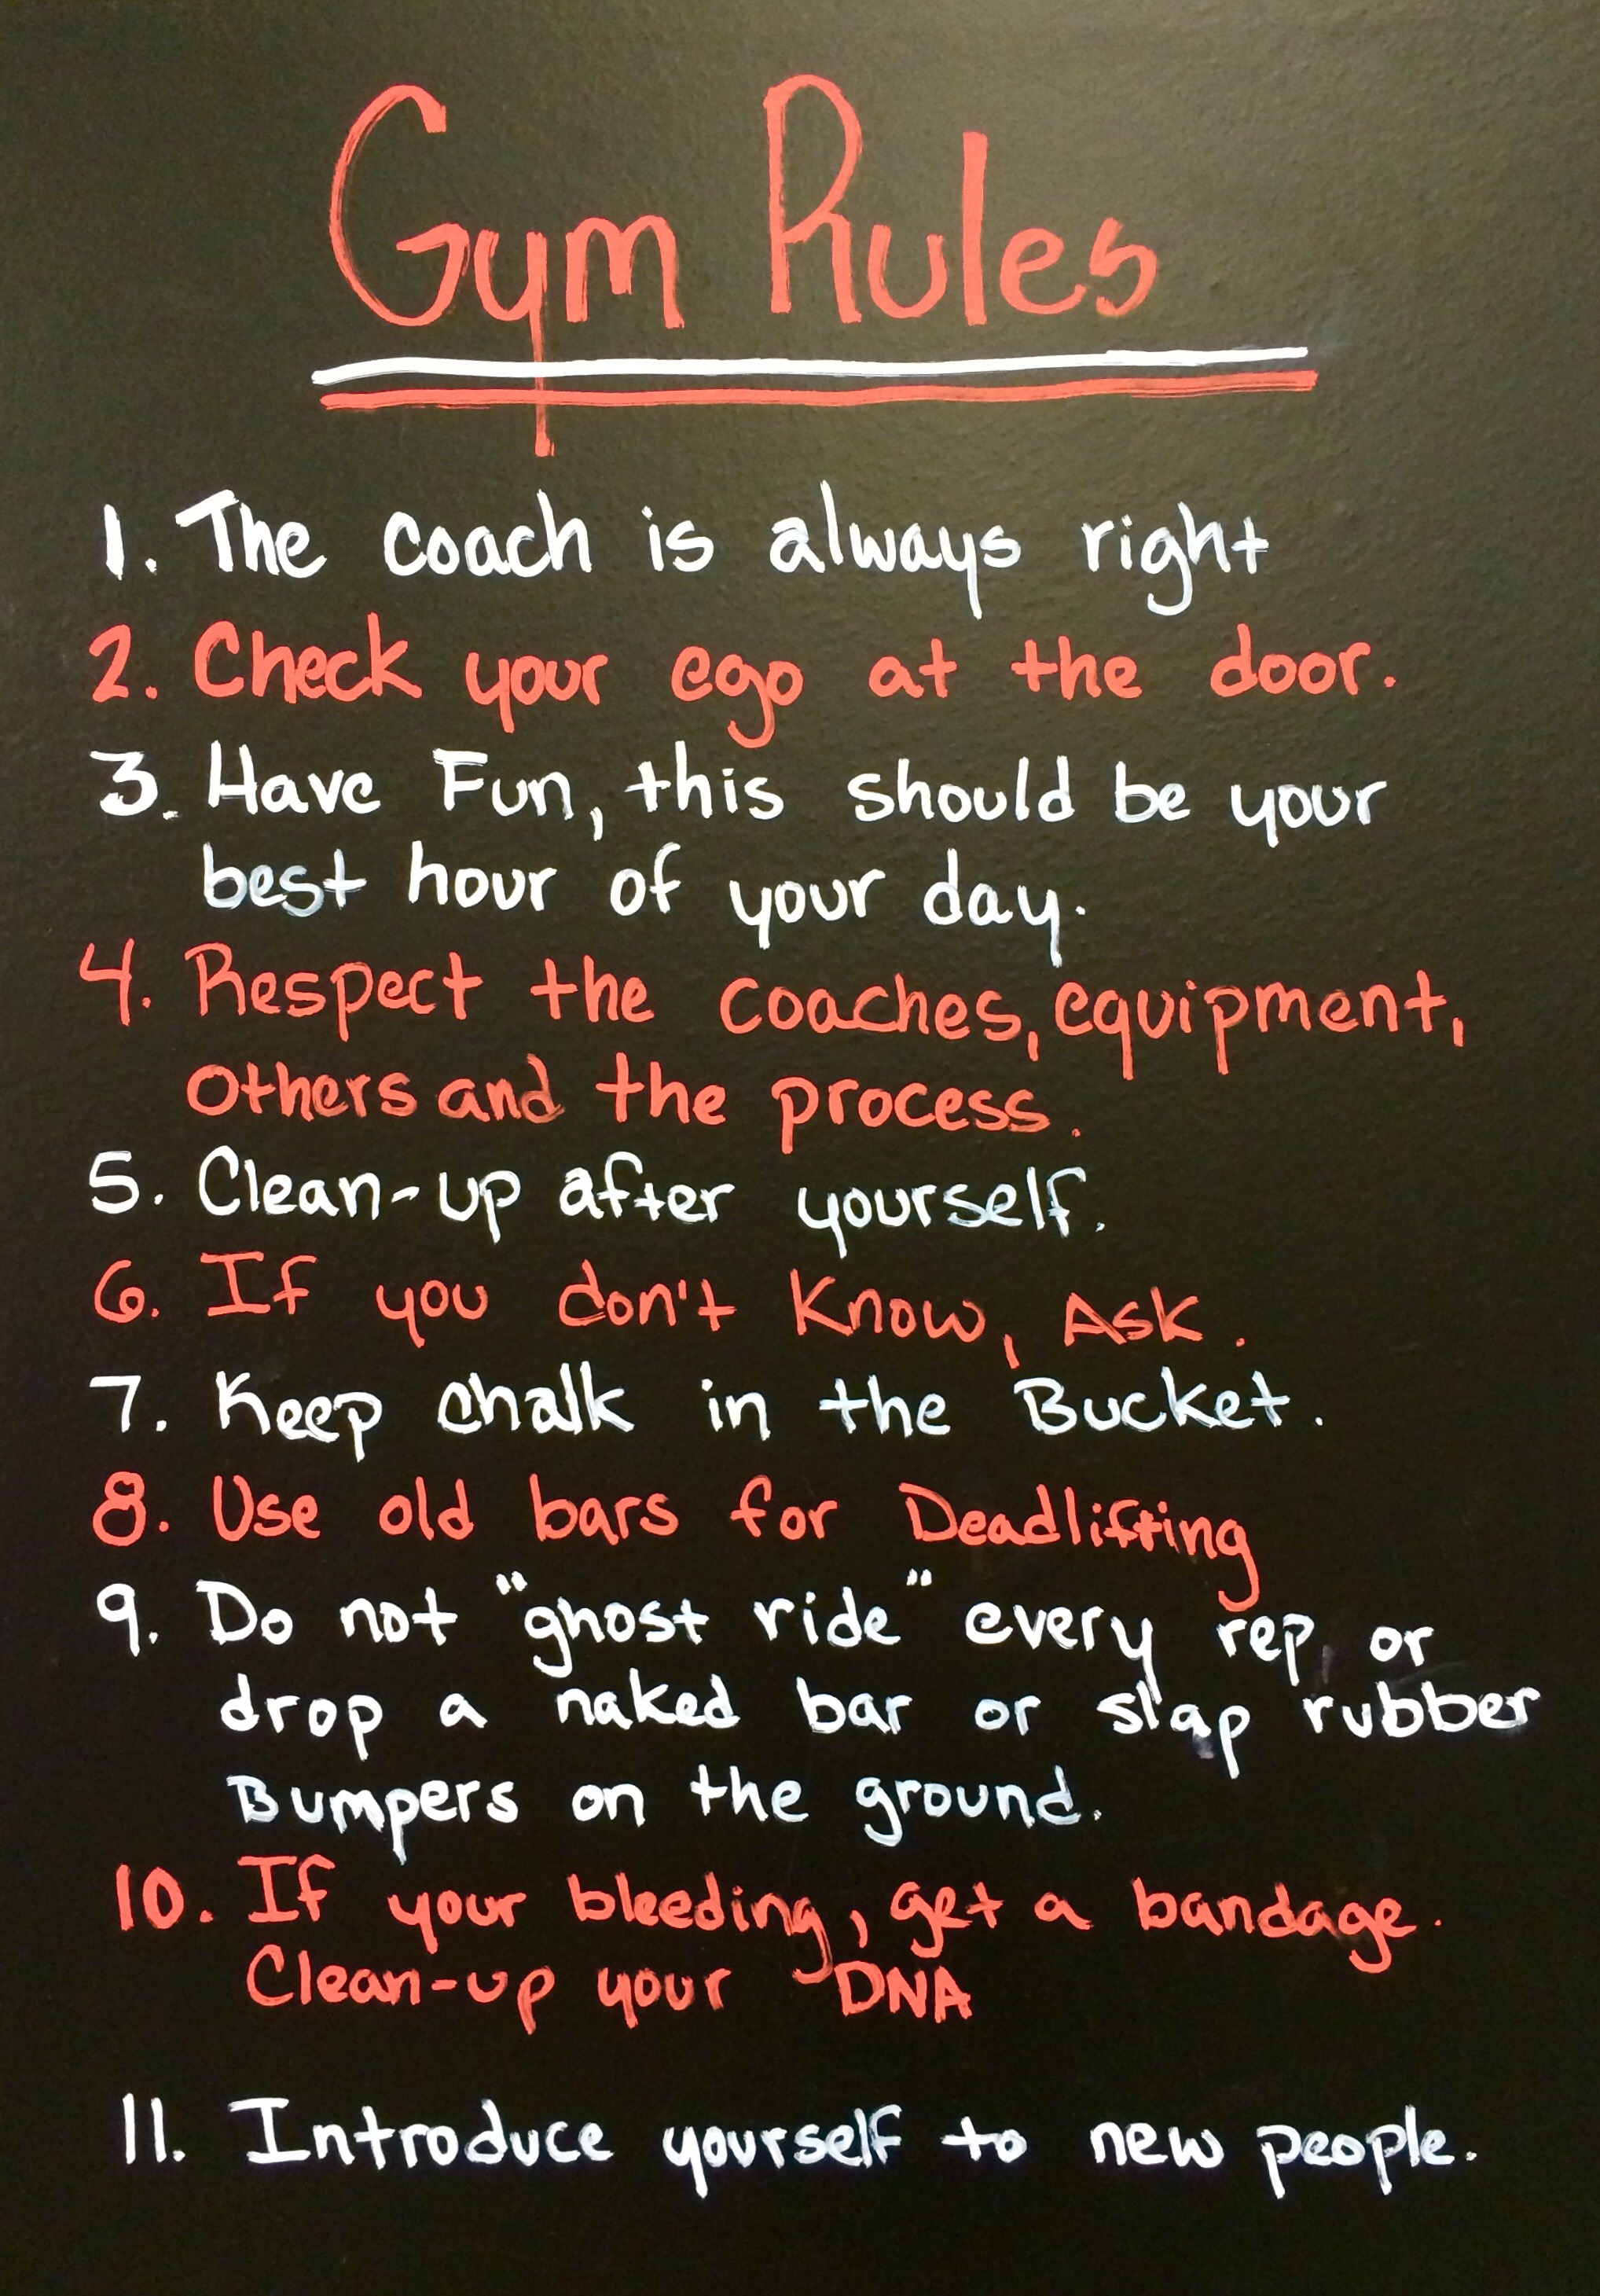 Gym Rules
1. The coach is always right
2. Check your ego at the door.
3. Have Fun, this should be your
best hour of your day.
4. Respect the coaches, equipment,
others and the process.
5. Clean-up after yourself.
6. If you don't know, Ask.
7. Keep chalk in the Bucket.
8. Use old bars for Deadlifting
9. Do not "ghost ride" every rep, or
drop a naked bar or slap rubber
Bumpers on the ground.
10. If your bleeding, get a bandage.
Clean-up your DNA
11. Introduce yourself to new people.